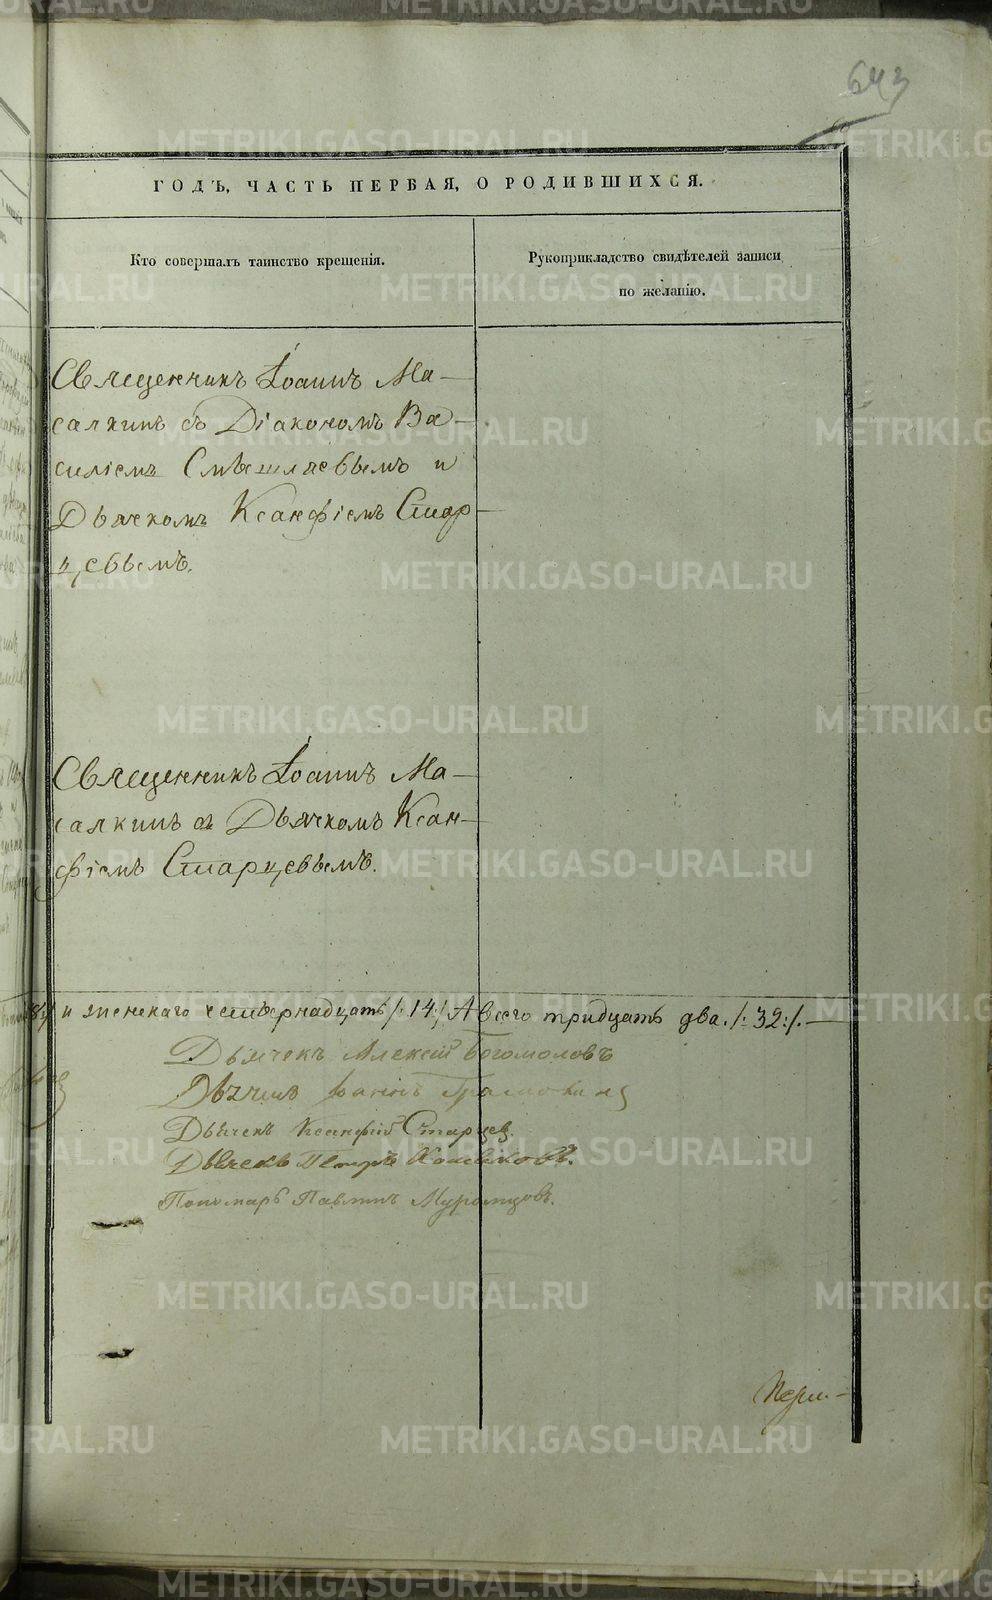 643
ГОДЪ, ЧАСТЬ ПЕРВАЯ, О РОДИВШИХСЯ.
Кто совершалъ таинство крещенія.
Рукоприкладство свидѣтелей записи
по желанію.
Священникъ Іоаннъ Ма-
салкинъ съ Діакономъ Ва-
силіемъ Смѣшляевымъ и
Дьячкомъ Ксанфіемъ Стар-
цевымъ.
Священникъ Іоаннъ Ма-
салкинъ съ Дьячкомъ Ксан-
фіемъ Старцевымъ.
и женскаго четырнадцать /:14:/ А всего тридцать два /:32:/.—
Дьячекъ Алексій Богомоловъ
Дьячекъ Іоаннъ
Дьячекъ Ксанфій Старцев
Дьячекъ Петръ
Пономарь Павлинъ Муромцовъ.
METRIKI.GASO-URAL.RU